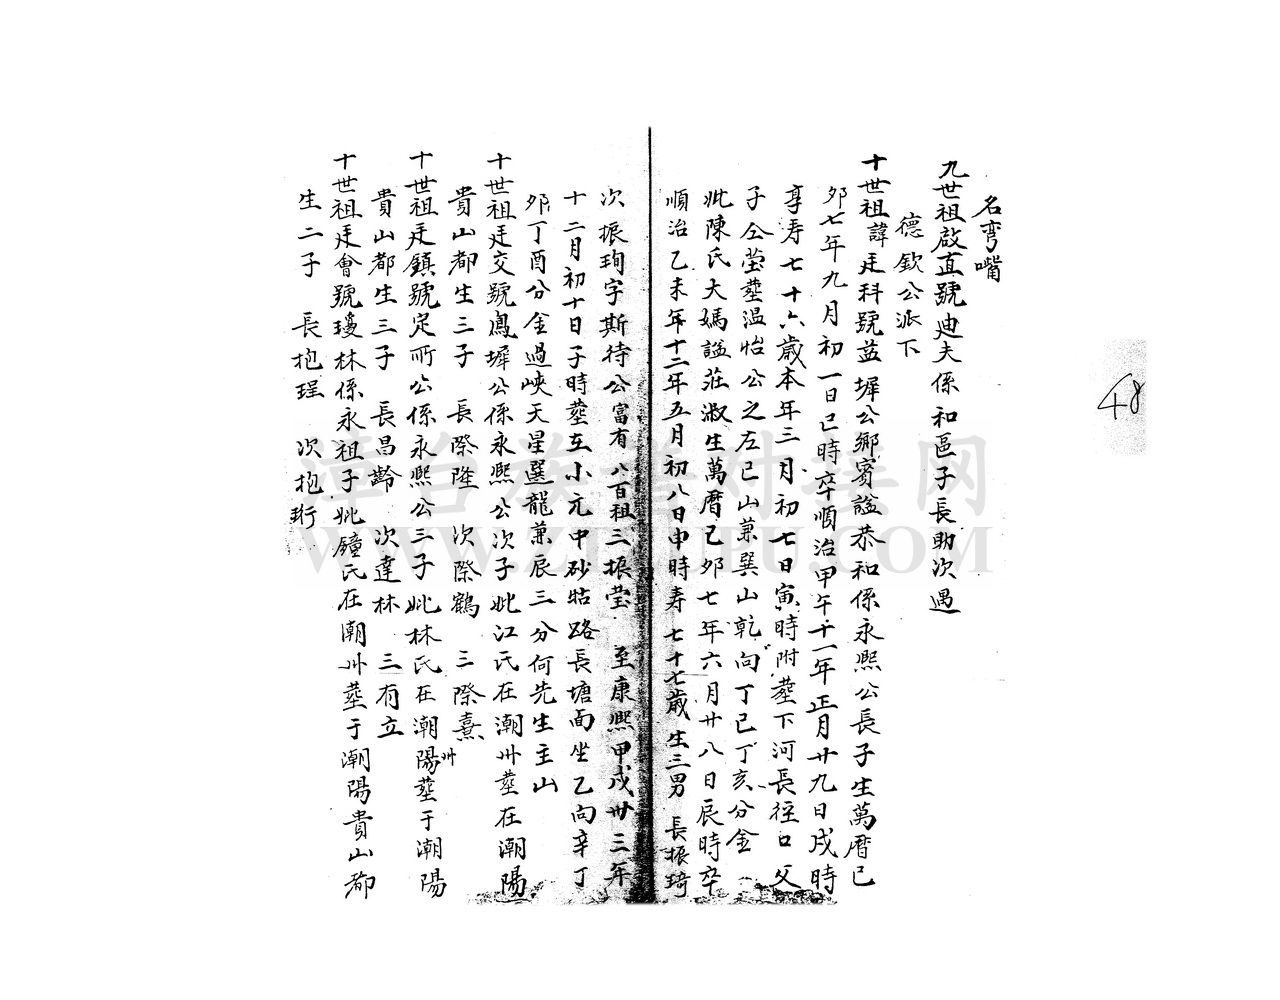 名彎嘴
九世祖啟直號迪夫係和區子長助次遇
德欽公派下
十世祖諱廷科號益墀公鄉賓謚恭和係永熙公長子生萬曆已
夘七年九月初一日已時卒順治甲午十一年正月廿九日戌時
享寿七十六歲本年三月初七日寅時附塟下河長徑口父
子仝塋塟温怡公之左已山兼巽山乾向丁已丁亥分金
妣陳氏大媽謚莊淑生萬曆已夘七年六月廿八日辰時卒
順治乙未年十二年五月初八日申時寿七十七歲生三男長振琦
次振珣字斯待公富有八百祖三振瑩至康熙甲戍卅三年
十二月初十日子時塟在小元中砂咕路長塘面坐乙向辛丁
夘丁酉分金過峽天星選龍兼辰三分何先生主山
十世祖廷交號鳳墀公係永熙公次子妣江氏在潮州塟在潮陽
貴山都生三子長際隆次際鶴三際熹
十世祖廷鎮號定所公係永熙公三子妣林氏在潮陽塟于潮陽
州
貴山都生三子長昌齡次達林三有立
十世祖廷會號瓊林係永祖子妣鐘氏在潮州塟于潮陽貴山都
生二子長抱珵次抱珩
48
WWW.ZTZUPU.COM